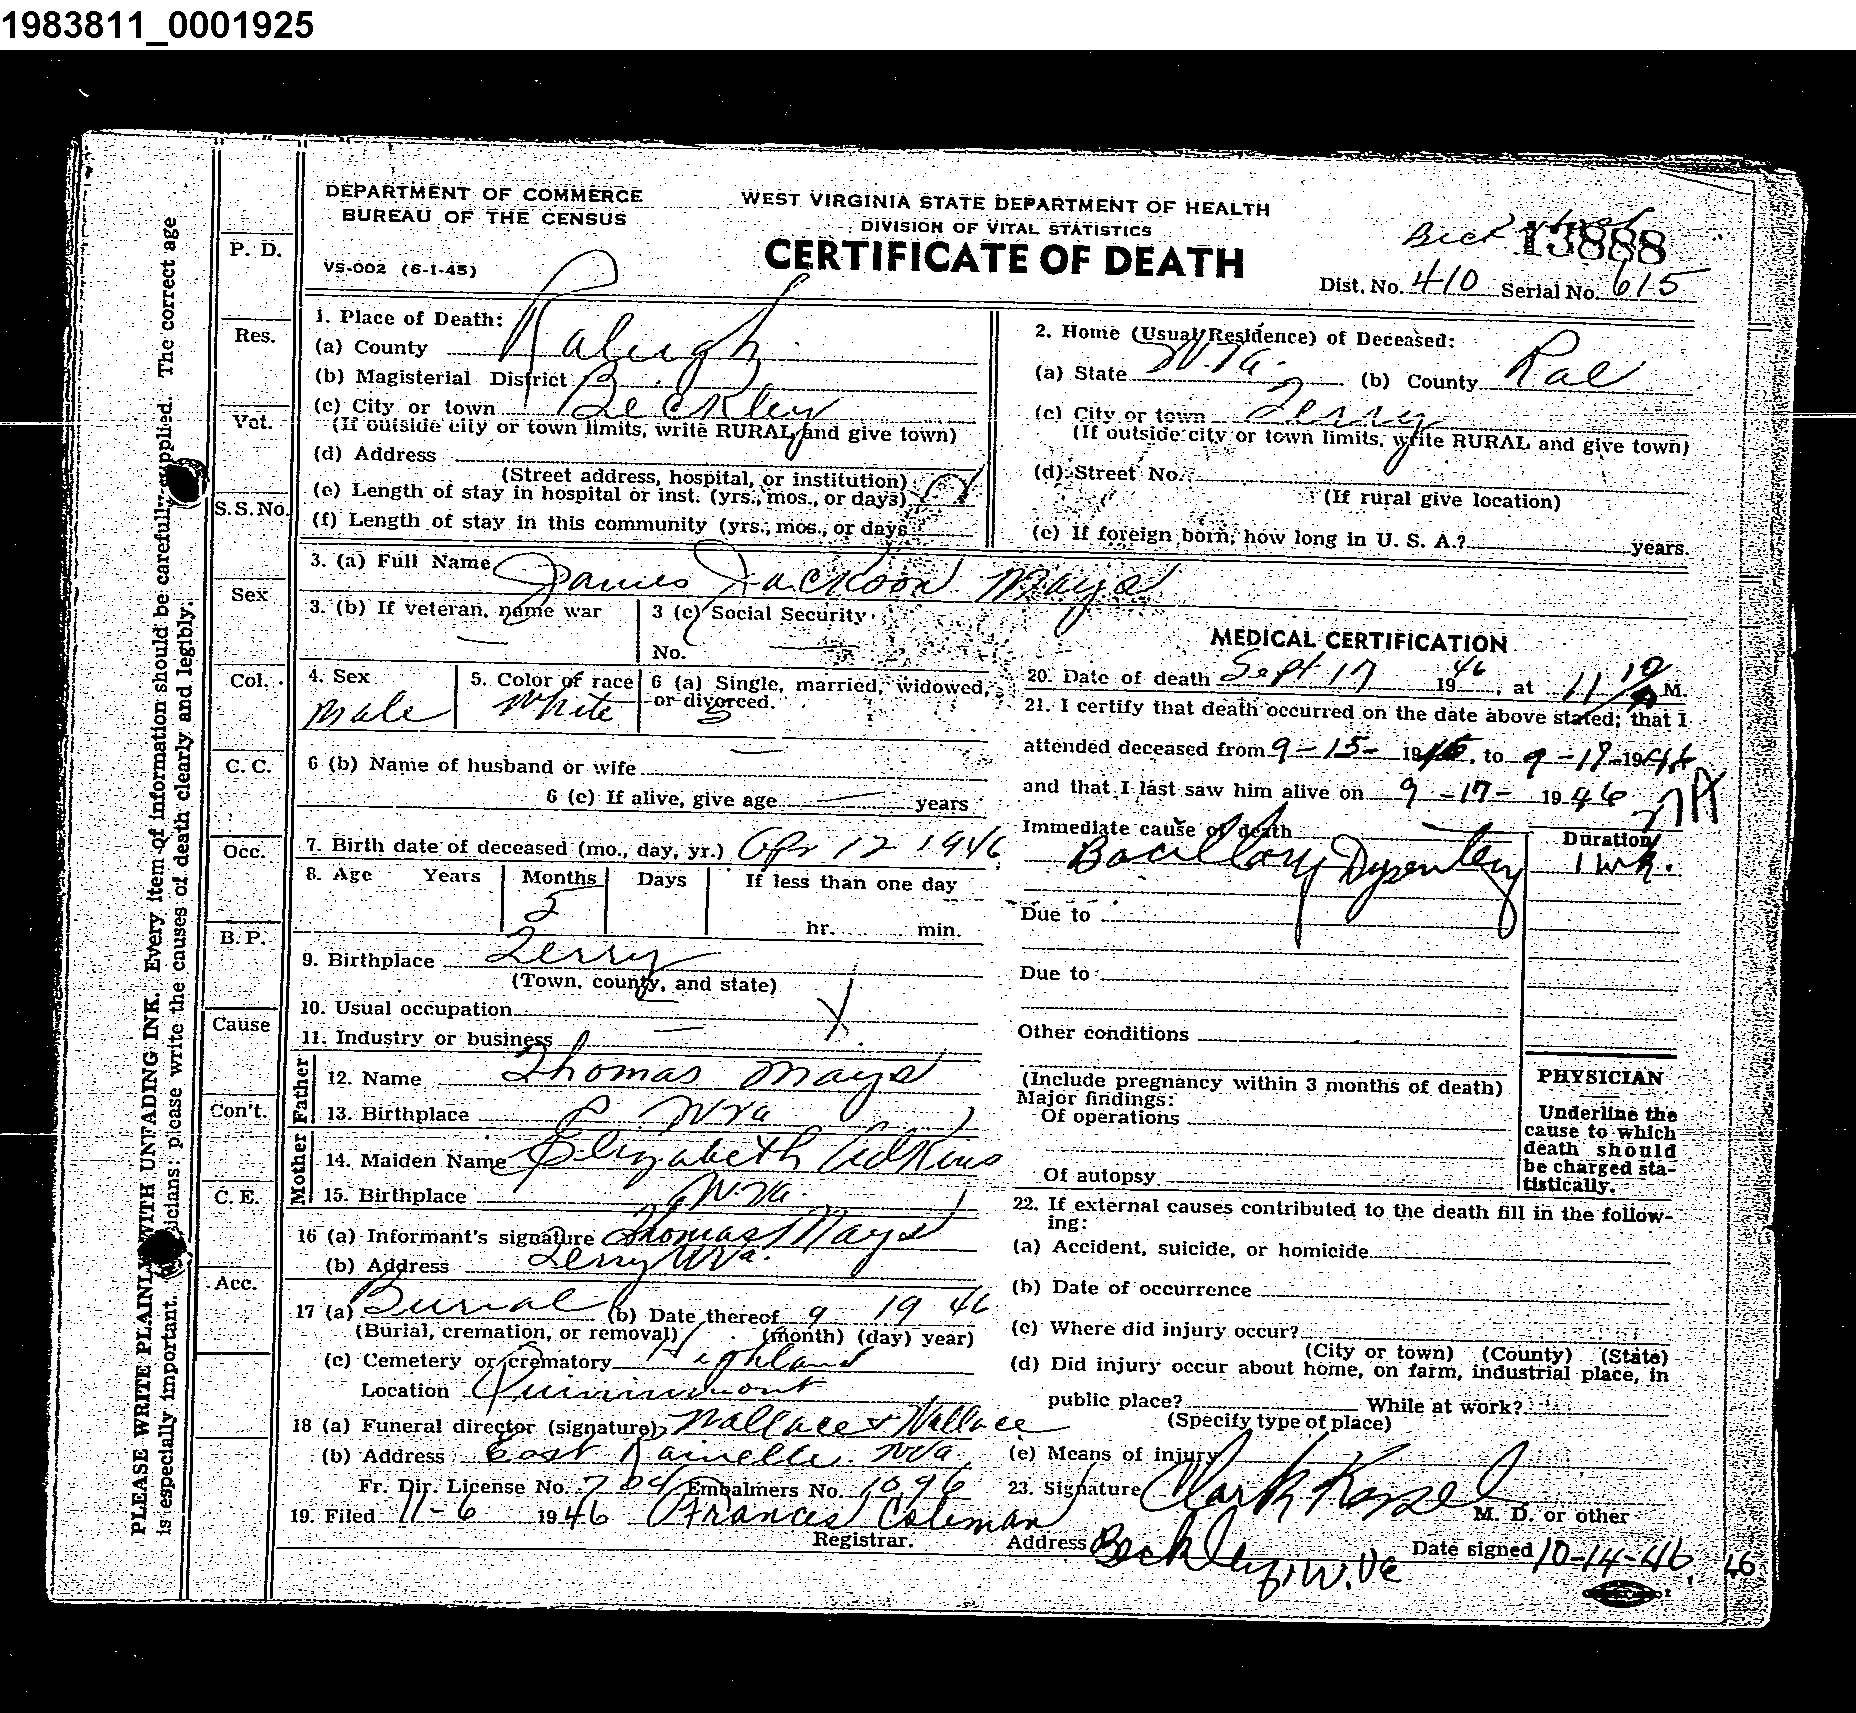 1983811_0001925
DEPARTMENT OF COMMERCE
BUREAU OF THE CENSUS
VS-002 (6-1-45)
WEST VIRGINIA STATE DEPARTMENT OF HEALTH
DIVISION OF VITAL STATISTICS
CERTIFICATE OF DEATH
13888
Dist. No. 410 Serial No. 615
PLEASE WRITE PLAINLY WITH UNFADING INK. Every item of information should be carefully supplied. The correct age
is especially important. Physicians: please write the causes of death clearly and legibly.
P. D.
Res.
Vet.
S. S. No.
Sex
Col.
C. C.
Occ.
B. P.
Cause
Con't.
C. E.
Acc.
1. Place of Death:
(a) County Raleigh
(b) Magisterial District
(c) City or town Beckley
(If outside city or town limits, write RURAL and give town)
(d) Address
(Street address, hospital, or institution)
(e) Length of stay in hospital or inst. (yrs., mos., or days)
(f) Length of stay in this community (yrs., mos., or days
2. Home (Usual Residence) of Deceased:
(a) State W.Va. (b) County Ral
(c) City or town Terry
(If outside city or town limits, write RURAL and give town)
(d) Street No.
(If rural give location)
(e) If foreign born, how long in U. S. A.? years.
3. (a) Full Name James Jackson Mays
3. (b) If veteran, name war
3 (c) Social Security
No.
4. Sex Male
5. Color of race White
6 (a) Single, married, widowed, or divorced. S
6 (b) Name of husband or wife
6 (c) If alive, give age years
7. Birth date of deceased (mo., day, yr.) Apr 12 1946
8. Age Years Months Days If less than one day
5
hr. min.
9. Birthplace Terry
(Town, county, and state)
10. Usual occupation
11. Industry or business
Father
12. Name Thomas Mays
13. Birthplace W Va
Mother
14. Maiden Name Elizabeth Adkins
15. Birthplace W. Va.
16 (a) Informant's signature Thomas Mays
(b) Address Terry W Va.
17 (a) Burial (b) Date thereof 9 19 46
(Burial, cremation, or removal) (month) (day) year)
(c) Cemetery or crematory Highland
Location Quinnimont
18 (a) Funeral director (signature) Wallace & Wallace
(b) Address East Rainelle W Va
Fr. Dir. License No. 704 Embalmers No. 1096
19. Filed 11-6 1946 Frances Coleman
Registrar.
MEDICAL CERTIFICATION
20. Date of death Sept 17 1946, at 11 10 M.
21. I certify that death occurred on the date above stated; that I
attended deceased from 9-15- 1946, to 9-17-1946
and that I last saw him alive on 9-17- 1946
Immediate cause of death Duration
Bacillary Dysentery 1 wk.
Due to
Due to
Other conditions
(Include pregnancy within 3 months of death)
Major findings:
Of operations
Of autopsy
PHYSICIAN
Underline the
cause to which
death should
be charged sta-
tistically.
22. If external causes contributed to the death fill in the follow-
ing:
(a) Accident, suicide, or homicide
(b) Date of occurrence
(c) Where did injury occur?
(City or town) (County) (State)
(d) Did injury occur about home, on farm, industrial place, in
public place? While at work?
(Specify type of place)
(e) Means of injury
23. Signature Clark Kessel
M. D. or other
Address Beckley, W. Va Date signed 10-14-46